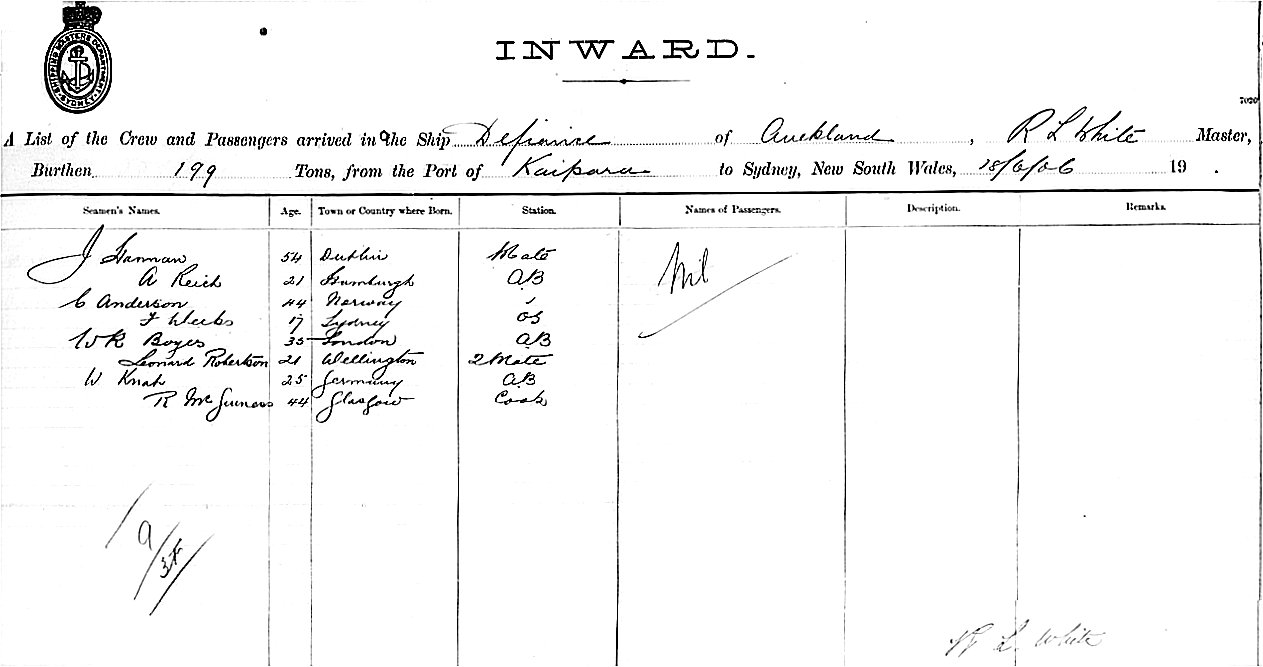 SHIPPING MASTERS DEPARTMENT SYDNEY
INWARD.
7020
A List of the Crew and Passengers arrived in the Ship Defiance of Auckland, R L White Master,
Burthen 199 Tons, from the Port of Kaipara to Sydney, New South Wales, 18/6/06 19 .
Seamen's Names. Age. Town or Country where Born. Station. Names of Passengers. Description. Remarks.
J Hannan 54 Dublin Mate Nil
A Reich 21 Hamburgh AB
C Anderson 44 Norway
F Weeks 17 Sydney OS
W R Boyes 35 London AB
Leonard Robertson 21 Wellington 2 Mate
W 25 Germany AB
R McGuiness 44 Glasgow Cook
9
R L White